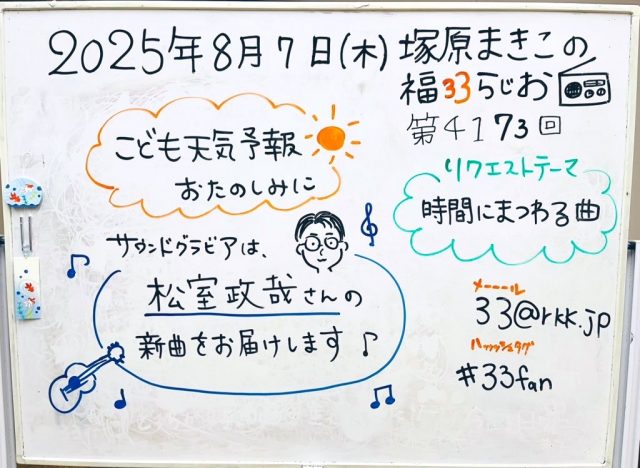 2025年8月7日(木) 塚原まきこの
福33らじお
第4173回
こども天気予報
おたのしみに
リクエストテーマ
時間にまつわる曲
サウンドグラビアは、
松室政哉さんの
新曲をお届けします♪
メーール
33@rkk.jp
ハッシュタグ
#33fan